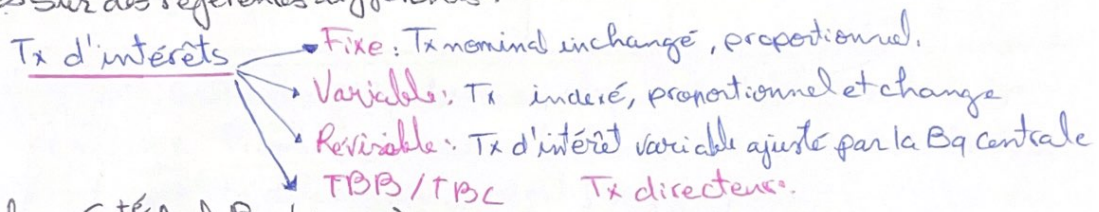 Sur des références
Tx d'intérêts
Fixe : Tx nominal inchangé, proportionnel.
Variable : Tx indexé, proportionnel et change
Révisable : Tx d'intérêt variable ajusté par la Bq Centrale
TBB / TBC Tx directeur.